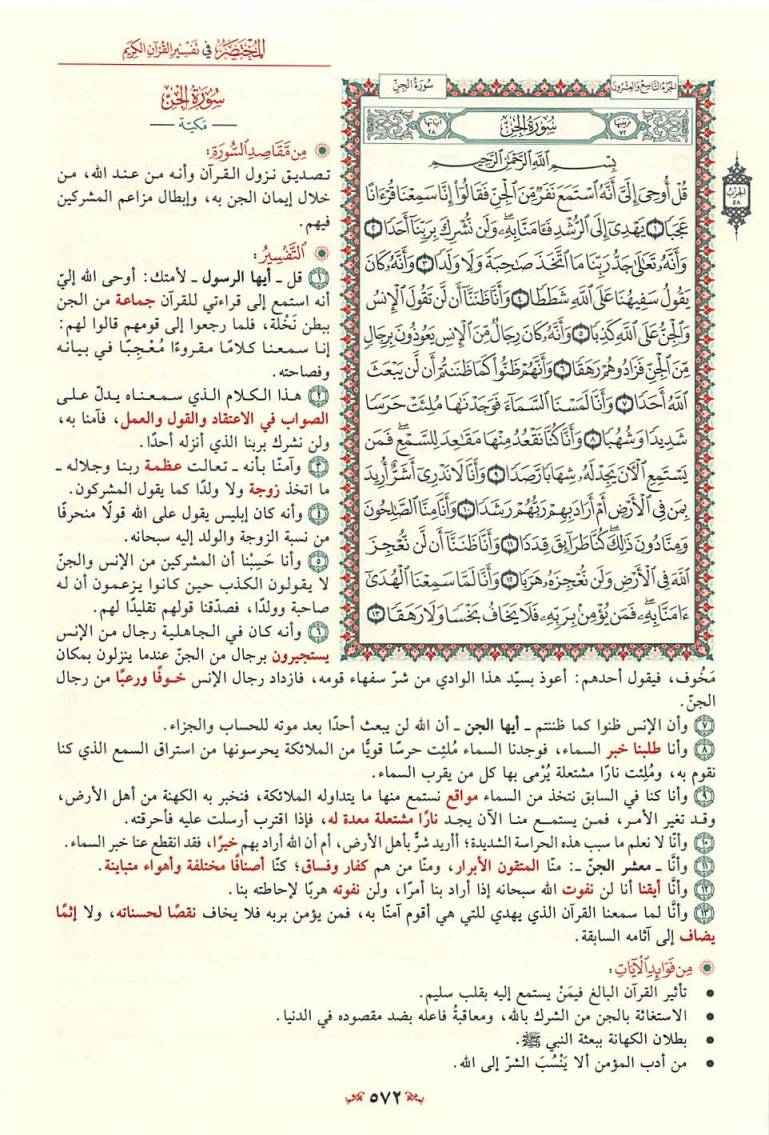 المختصر في تفسير القرآن الكريم
الجزء التاسع والعشرون
سورة الجن
ترتيبها ٧٢
سُورَةُ الجِنِّ
آياتها ٢٨
بِسْمِ اللَّهِ الرَّحْمَٰنِ الرَّحِيمِ
قُلْ أُوحِيَ إِلَيَّ أَنَّهُ ٱسْتَمَعَ نَفَرٌ مِّنَ ٱلْجِنِّ فَقَالُوٓاْ إِنَّا سَمِعْنَا قُرْءَانًا
عَجَبًا ١ يَهْدِيٓ إِلَى ٱلرُّشْدِ فَـَٔامَنَّا بِهِۦۖ وَلَن نُّشْرِكَ بِرَبِّنَآ أَحَدًا ٢
وَأَنَّهُۥ تَعَٰلَىٰ جَدُّ رَبِّنَا مَا ٱتَّخَذَ صَٰحِبَةً وَلَا وَلَدًا ٣ وَأَنَّهُۥ كَانَ
يَقُولُ سَفِيهُنَا عَلَى ٱللَّهِ شَطَطًا ٤ وَأَنَّا ظَنَنَّآ أَن لَّن تَقُولَ ٱلْإِنسُ
وَٱلْجِنُّ عَلَى ٱللَّهِ كَذِبًا ٥ وَأَنَّهُۥ كَانَ رِجَالٌ مِّنَ ٱلْإِنسِ يَعُوذُونَ بِرِجَالٍ
مِّنَ ٱلْجِنِّ فَزَادُوهُمْ رَهَقًا ٦ وَأَنَّهُمْ ظَنُّواْ كَمَا ظَنَنتُمْ أَن لَّن يَبْعَثَ
ٱللَّهُ أَحَدًا ٧ وَأَنَّا لَمَسْنَا ٱلسَّمَآءَ فَوَجَدْنَٰهَا مُلِئَتْ حَرَسًا
شَدِيدًا وَشُهُبًا ٨ وَأَنَّا كُنَّا نَقْعُدُ مِنْهَا مَقَٰعِدَ لِلسَّمْعِۖ فَمَن
يَسْتَمِعِ ٱلْـَٔانَ يَجِدْ لَهُۥ شِهَابًا رَّصَدًا ٩ وَأَنَّا لَا نَدْرِيٓ أَشَرٌّ أُرِيدَ
بِمَن فِي ٱلْأَرْضِ أَمْ أَرَادَ بِهِمْ رَبُّهُمْ رَشَدًا ١٠ وَأَنَّا مِنَّا ٱلصَّٰلِحُونَ
وَمِنَّا دُونَ ذَٰلِكَۖ كُنَّا طَرَآئِقَ قِدَدًا ١١ وَأَنَّا ظَنَنَّآ أَن لَّن نُّعْجِزَ
ٱللَّهَ فِي ٱلْأَرْضِ وَلَن نُّعْجِزَهُۥ هَرَبًا ١٢ وَأَنَّا لَمَّا سَمِعْنَا ٱلْهُدَىٰٓ
ءَامَنَّا بِهِۦۖ فَمَن يُؤْمِنۢ بِرَبِّهِۦ فَلَا يَخَافُ بَخْسًا وَلَا رَهَقًا ١٣
الحزب
٥٨
سُورَةُ الجِنِّ
مَكيّة
من مقاصد السورة:
تصديق نزول القرآن وأنه من عند الله، من
خلال إيمان الجن به، وإبطال مزاعم المشركين
فيهم.
التفسير:
١ قل ـ أيها الرسول ـ لأمتك: أوحى الله إليّ
أنه استمع إلى قراءتي للقرآن جماعة من الجن
ببطن نَخْلة، فلما رجعوا إلى قومهم قالوا لهم:
إنا سمعنا كلامًا مقروءًا مُعْجِبًا في بيانه
وفصاحته.
٢ هذا الكلام الذي سمعناه يدلّ على
الصواب في الاعتقاد والقول والعمل، فآمنا به،
ولن نشرك بربنا الذي أنزله أحدًا.
٣ وآمنّا بأنه ـ تعالت عظمة ربنا وجلاله ـ
ما اتخذ زوجة ولا ولدًا كما يقول المشركون.
٤ وأنه كان إبليس يقول على الله قولًا منحرفًا
من نسبة الزوجة والولد إليه سبحانه.
٥ وأنا حَسِبْنا أن المشركين من الإنس والجنّ
لا يقولون الكذب حين كانوا يزعمون أن له
صاحبة وولدًا، فصدّقنا قولهم تقليدًا لهم.
٦ وأنه كان في الجاهلية رجال من الإنس
يستجيرون برجال من الجنّ عندما ينزلون بمكان
مَخُوف، فيقول أحدهم: أعوذ بسيّد هذا الوادي من شرّ سفهاء قومه، فازداد رجال الإنس خوفًا ورعبًا من رجال
الجنّ.
٧ وأن الإنس ظنوا كما ظننتم ـ أيها الجن ـ أن الله لن يبعث أحدًا بعد موته للحساب والجزاء.
٨ وأنا طلبنا خبر السماء، فوجدنا السماء مُلئت حرسًا قويًّا من الملائكة يحرسونها من استراق السمع الذي كنا
نقوم به، ومُلئت نارًا مشتعلة يُرْمى بها كل من يقرب السماء.
٩ وأنا كنا في السابق نتخذ من السماء مواقع نستمع منها ما يتداوله الملائكة، فنخبر به الكهنة من أهل الأرض،
وقد تغير الأمر، فمن يستمع منا الآن يجد نارًا مشتعلة معدة له، فإذا اقترب أرسلت عليه فأحرقته.
١٠ وأنّا لا نعلم ما سبب هذه الحراسة الشديدة؛ أأريد شرٌّ بأهل الأرض، أم أن الله أراد بهم خيرًا، فقد انقطع عنا خبر السماء.
١١ وأنَّا ـ معشر الجنّ ـ: منّا المتقون الأبرار، ومنّا من هم كفار وفساق؛ كنّا أصنافًا مختلفة وأهواء متباينة.
١٢ وأنَّا أيقنا أنا لن نفوت الله سبحانه إذا أراد بنا أمرًا، ولن نفوته هربًا لإحاطته بنا.
١٣ وأنَّا لما سمعنا القرآن الذي يهدي للتي هي أقوم آمنّا به، فمن يؤمن بربه فلا يخاف نقصًا لحسناته، ولا إثمًا
يضاف إلى آثامه السابقة.
من فوائد الآيات:
• تأثير القرآن البالغ فيمَنْ يستمع إليه بقلب سليم.
• الاستغاثة بالجن من الشرك بالله، ومعاقبةُ فاعله بضد مقصوده في الدنيا.
• بطلان الكهانة ببعثة النبي ﷺ.
• من أدب المؤمن ألا يَنْسُبَ الشرّ إلى الله.
٥٧٢